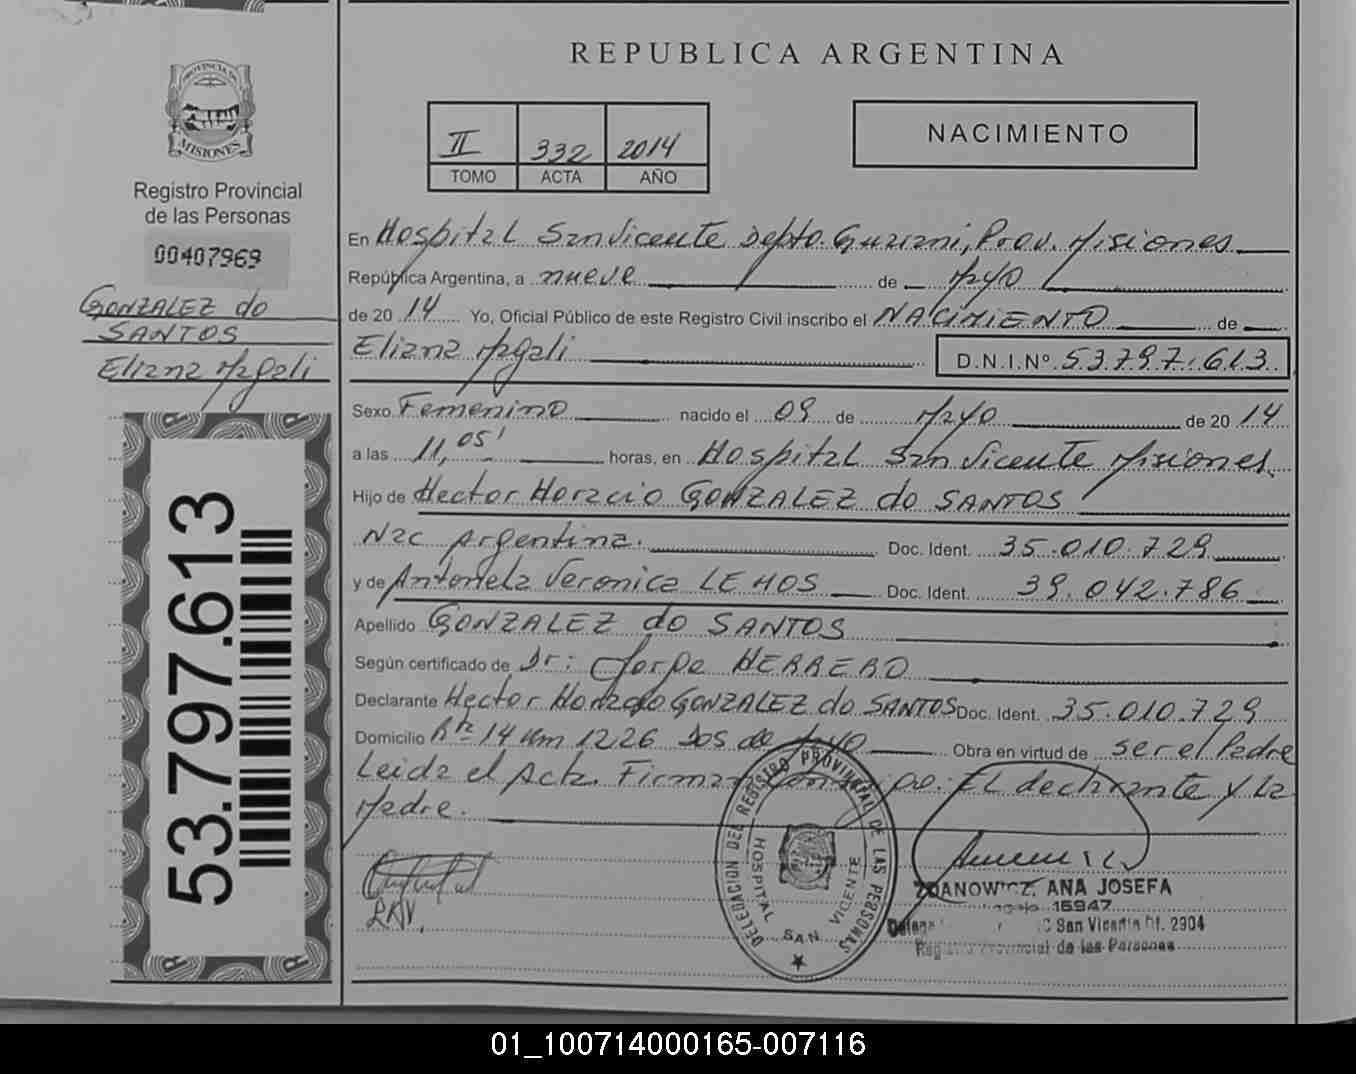 PROVINCIA DE
MISIONES
Registro Provincial
de las Personas
00407969
GONZALEZ do
SANTOS
Eliana Magali
53.797.613
REPUBLICA ARGENTINA
II 332 2014
TOMO ACTA AÑO
NACIMIENTO
En Hospital San Vicente Depto. Guarani, Prov. Misiones
República Argentina, a nueve de Mayo
de 2014 Yo, Oficial Público de este Registro Civil inscribo el NACIMIENTO de
Eliana Magali D.N.I.Nº 53.797.613
Sexo Femenino nacido el 09 de Mayo de 2014
a las 11,05' horas, en Hospital San Vicente Misiones.
Hijo de Hector Horacio GONZALEZ do SANTOS
Nac Argentina. Doc. Ident. 35.010.729
y de Antonela Veronica LEMOS Doc. Ident. 39.042.786
Apellido GONZALEZ do SANTOS
Según certificado de Dr: Jorge HERRERO
Declarante Hector Horacio GONZALEZ do SANTOS Doc. Ident. 35.010.729
Domicilio Rta 14 km 1226 Dos de Mayo Obra en virtud de ser el Padre
Leida el Acta. Firman El declarante y La
Madre.
DELEGACION DEL REGISTRO PROVINCIAL DE LAS PERSONAS
HOSPITAL SAN VICENTE
ANA JOSEFA
15947
San Vicente 2904
Provincial de las Personas
01_100714000165-007116